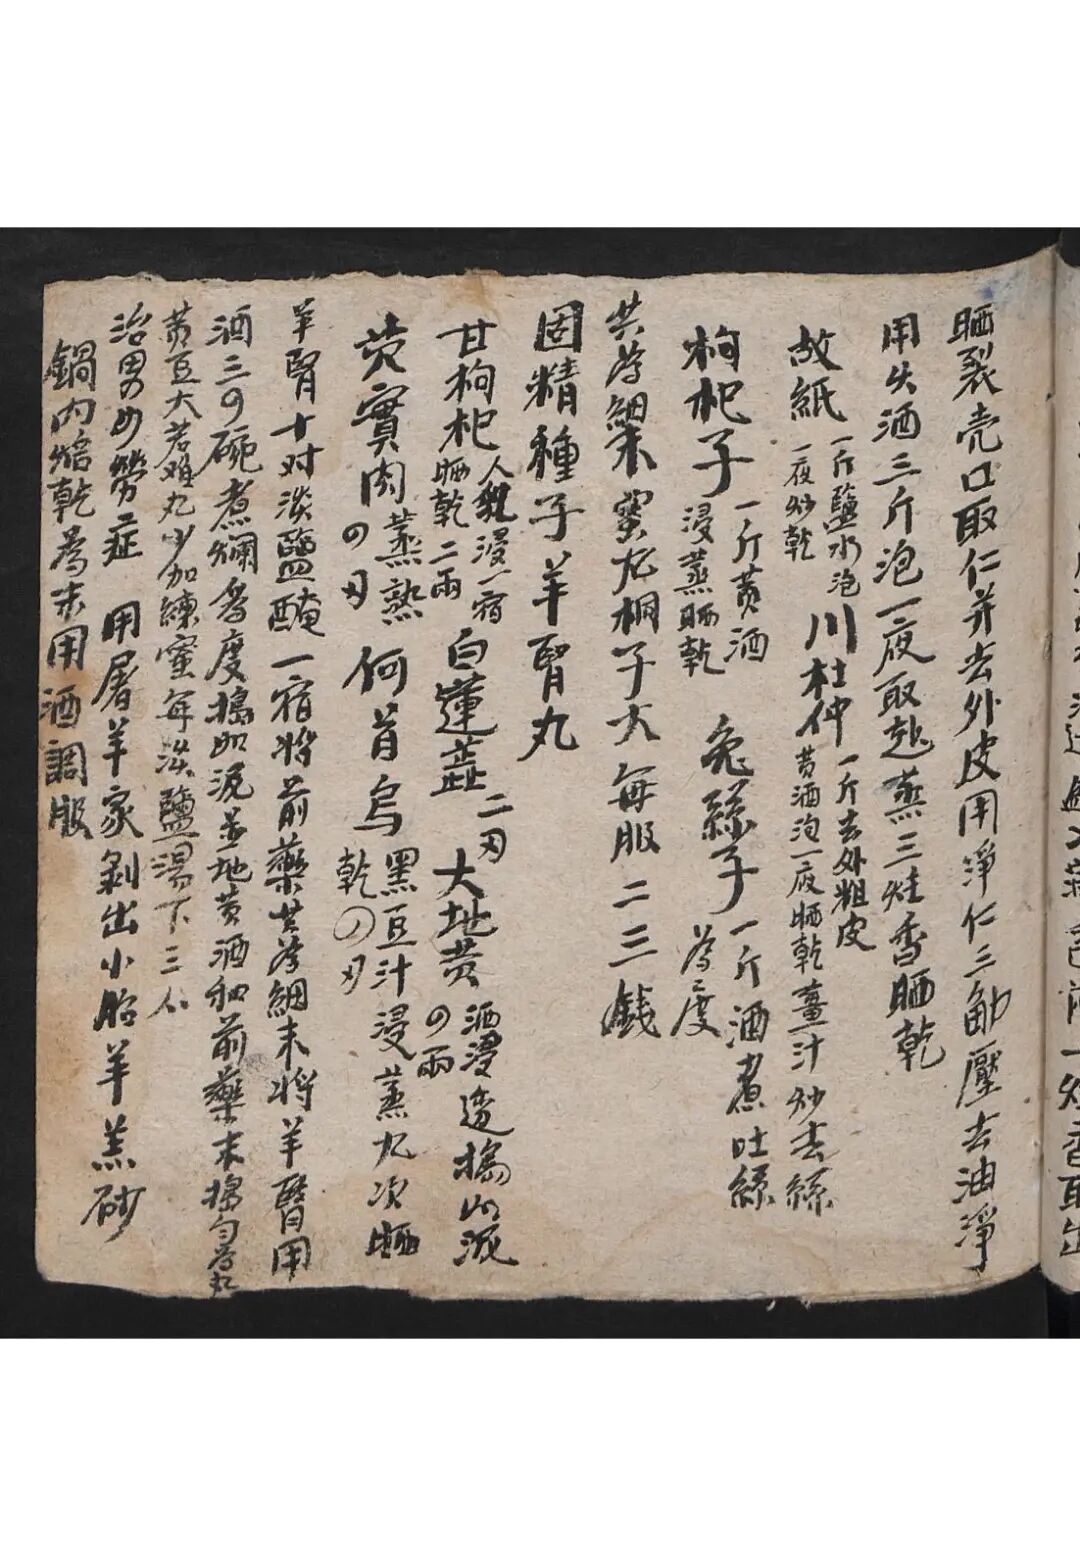 晒裂壳口取仁并去外皮用淨仁三觔壓去油淨
用火酒三斤泡一夜取起蒸三炷香晒乾
故紙 一斤鹽水泡一夜炒乾 川杜仲 一斤去外粗皮黄酒泡一夜晒乾薑汁炒去絲
枸杞子 一斤黄酒浸蒸晒乾 兔絲子 一斤酒煮吐絲為度
共為細末蜜丸桐子大每服二三錢
固精種子羊腎丸
甘枸杞 人乳浸一宿晒乾二兩 白蓮蕋 二刄 大地黄 酒浸透搗如泥四兩
芡實肉 蒸熟四刄 何首烏 黑豆汁浸蒸九次晒乾四刄
羊腎十对淡鹽醃一宿将前藥共為細末将羊腎用
酒三四碗煮爛為度搗如泥並地黄酒和前藥末搗匀為丸
黄豆大若难丸少加練蜜每淡鹽湯下三
治男女勞症 用屠羊家剥出小胎羊羔砂
鍋内焙乾為末用酒調服